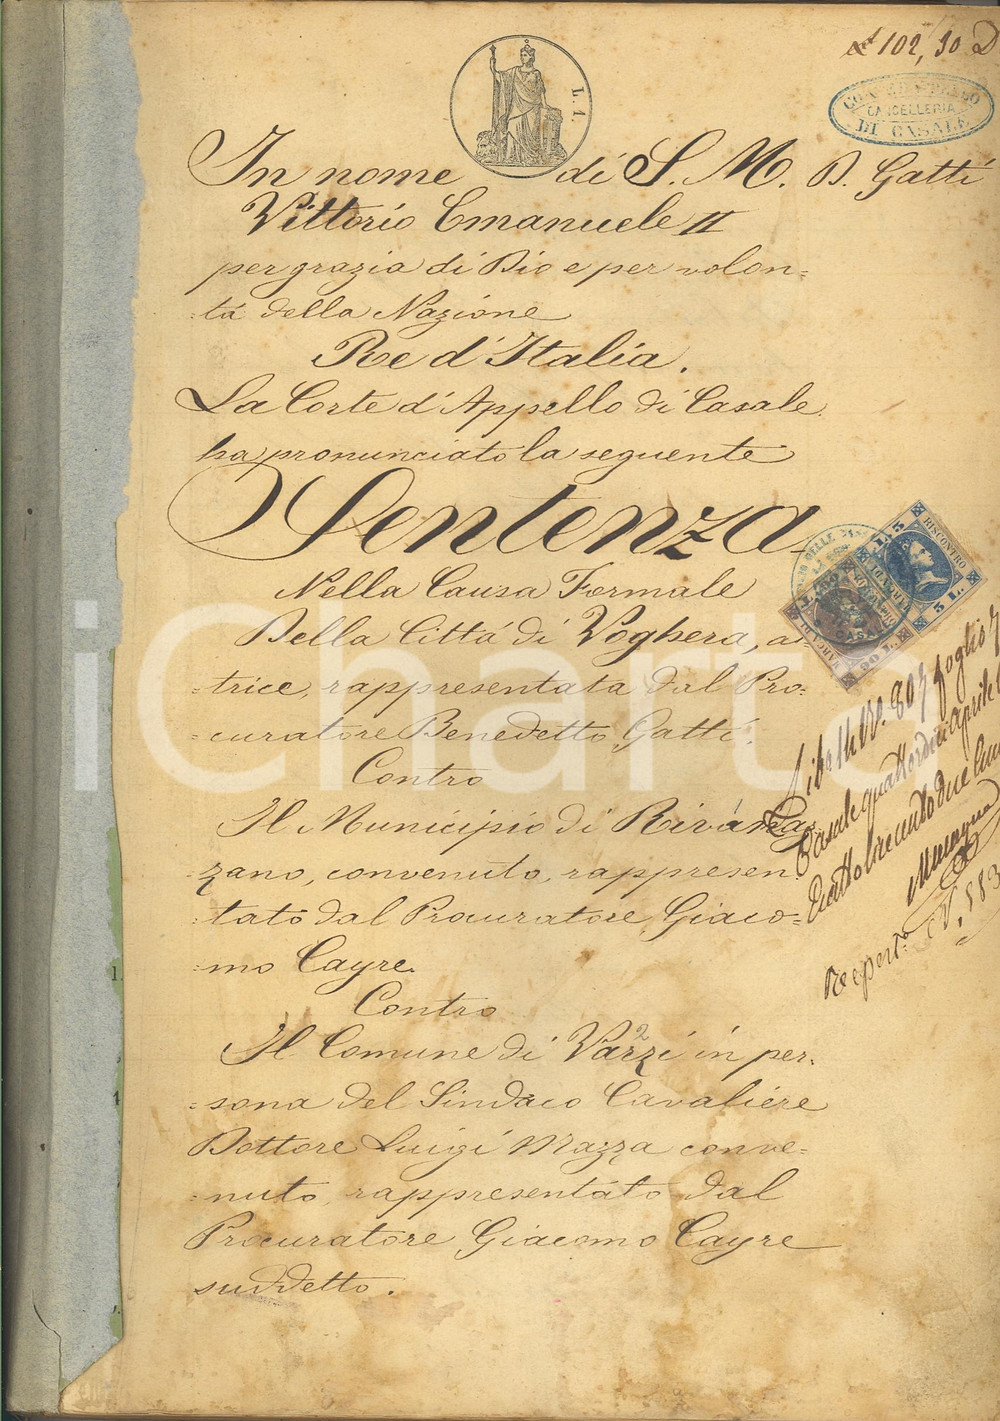 102, 90 D
L. 1.
CORTE D'APPELLO
CANCELLERIA
DI CASALE
In nome di S. M. B. Gatti
Vittorio Emanuele II
per grazia di Dio e per volon=
=tà della Nazione
Re d'Italia.
La Corte d'Appello di Casale
ha pronunciato la seguente
Sentenza
Nella Causa Formale
Della Città di Voghera, at=
=trice, rappresentata dal Pro=
=curatore Benedetto Gatti.
Contro
Il Municipio di Rivanaz=
=zano, convenuto, rappresen=
=tato dal Procuratore Giaco=
=mo Cayre.
Contro
Il Comune di Varzi in per=
=sona del Sindaco Cavaliere
Dottore Luigi Mazza conve=
=nuto, rappresentato dal
Procuratore Giacomo Cayre
suddetto.
RISCONTRO
MARCA DI
3 L.
MARCA DI
90
foglio
Casale quattordici aprile
iCharta